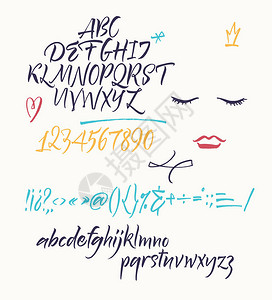 ABC
DEFGHIJ
KLMNOPQRST
UVWXYZ
1234567890
abcdefghijklmno
pqrstuvwxyz